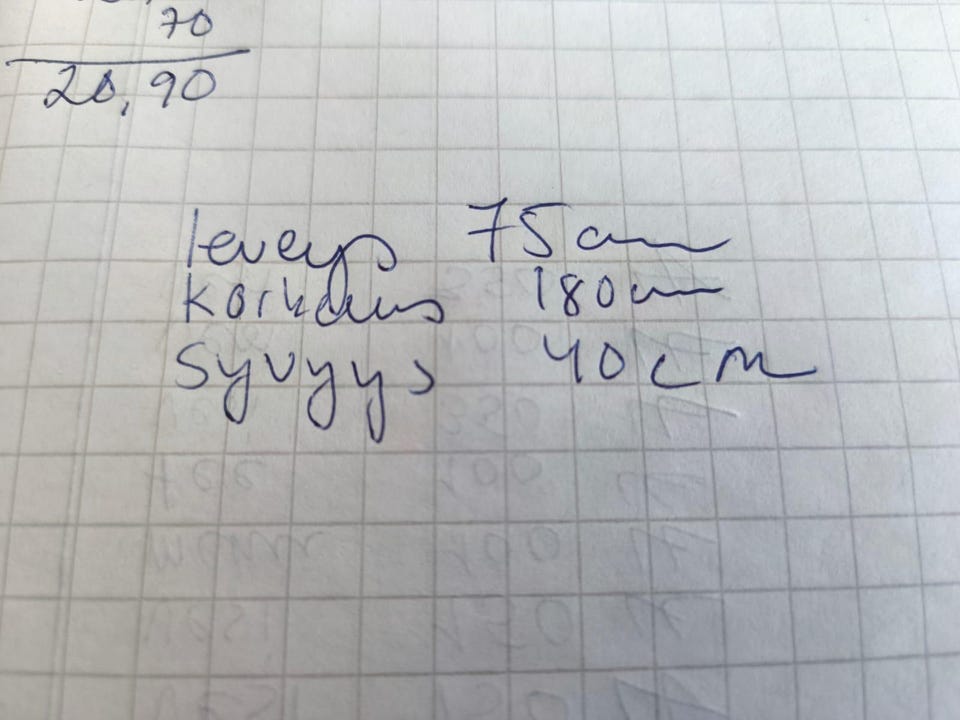 70
20,90
leveys 75cm
Korkeus 180cm
Syvyys 40cm